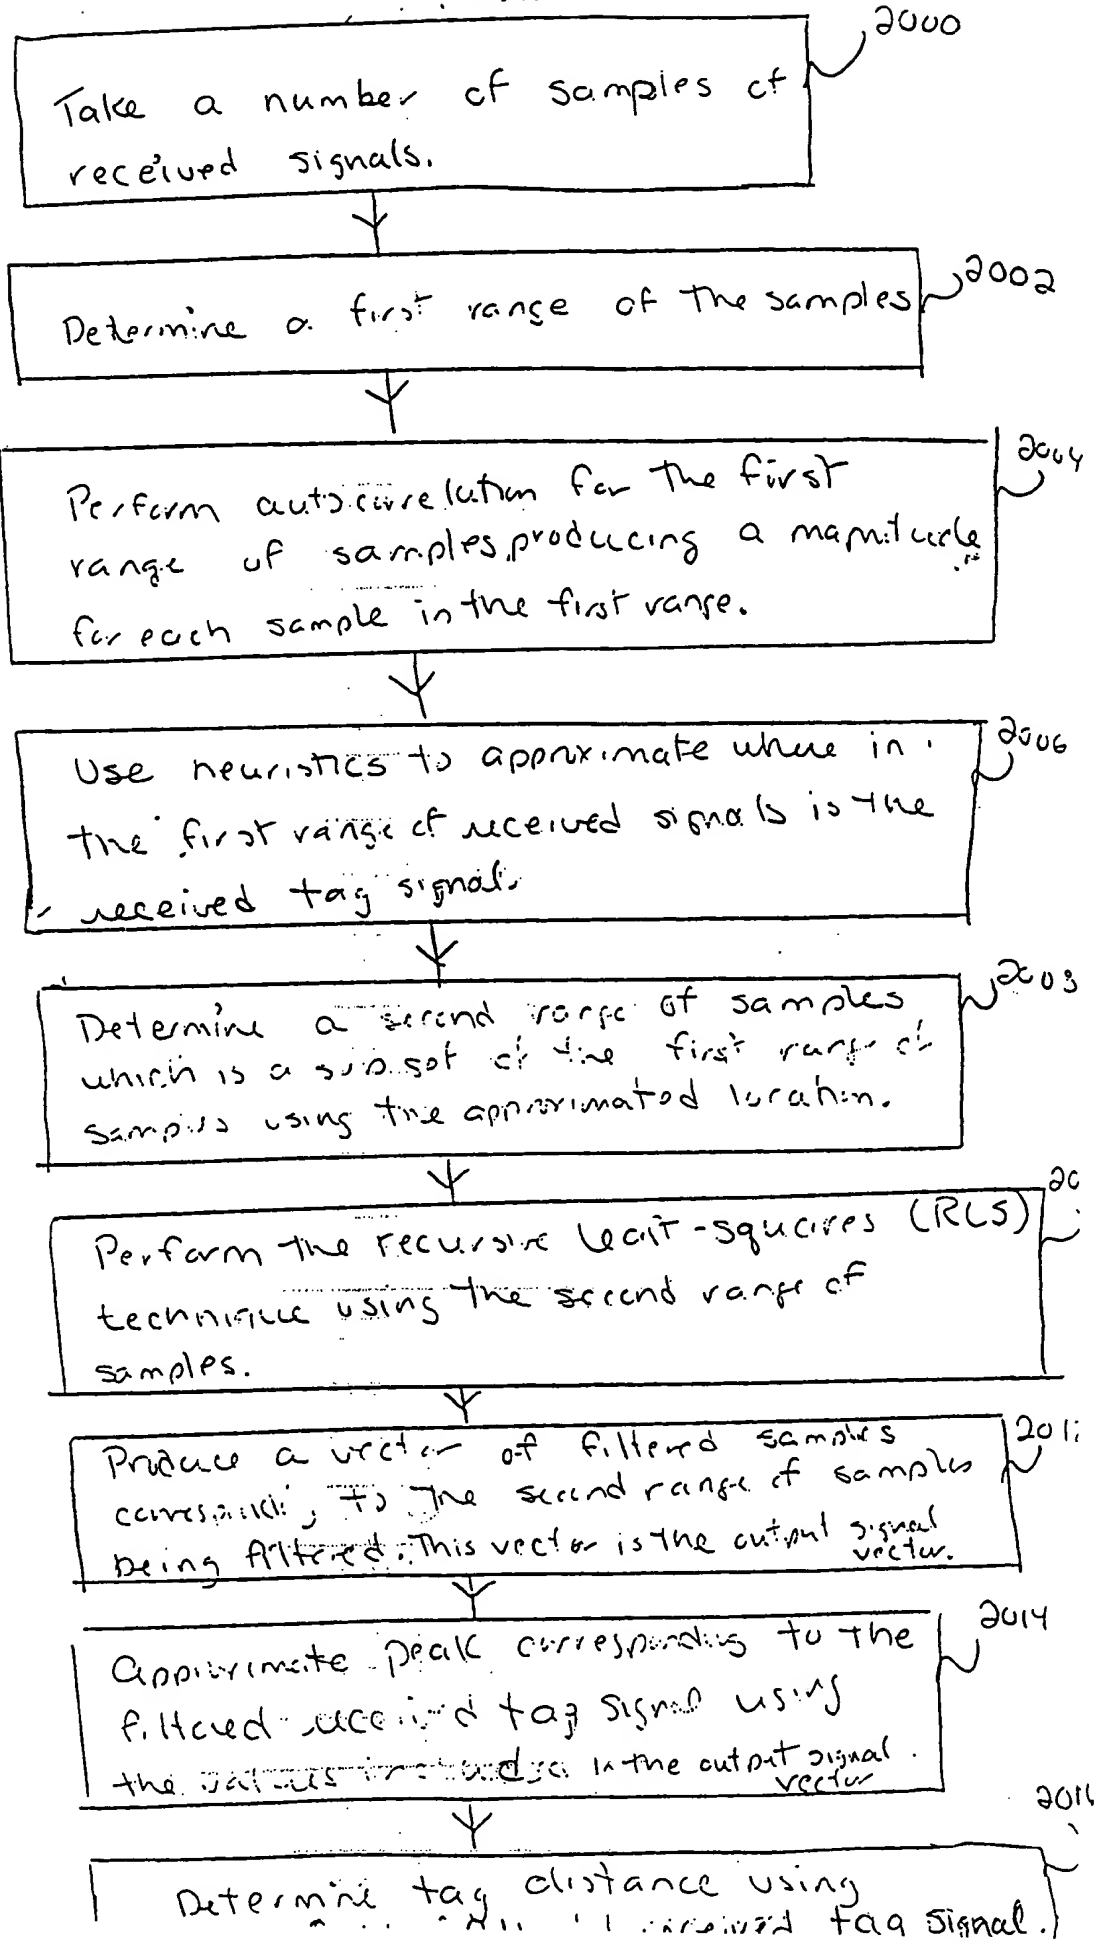 2000
Take a number of samples of
received signals.
2002
Determine a first range of the samples
2004
Perform autocorrelation for the first
range of samples, producing a magnitude
for each sample in the first range.
2006
Use heuristics to approximate where in
the first range of received signals is the
received tag signal.
2008
Determine a second range of samples
which is a subset of the first range of
samples using the approximated location.
20
Perform the recursive least-squares (RLS)
technique using the second range of
samples.
201
Produce a vector of filtered samples
corresponding to the second range of samples
being filtered. This vector is the output signal
vector.
2014
Approximate peak corresponding to the
filtered received tag signal using
the values in the output signal
vector
201
Determine tag distance using
received tag signal.